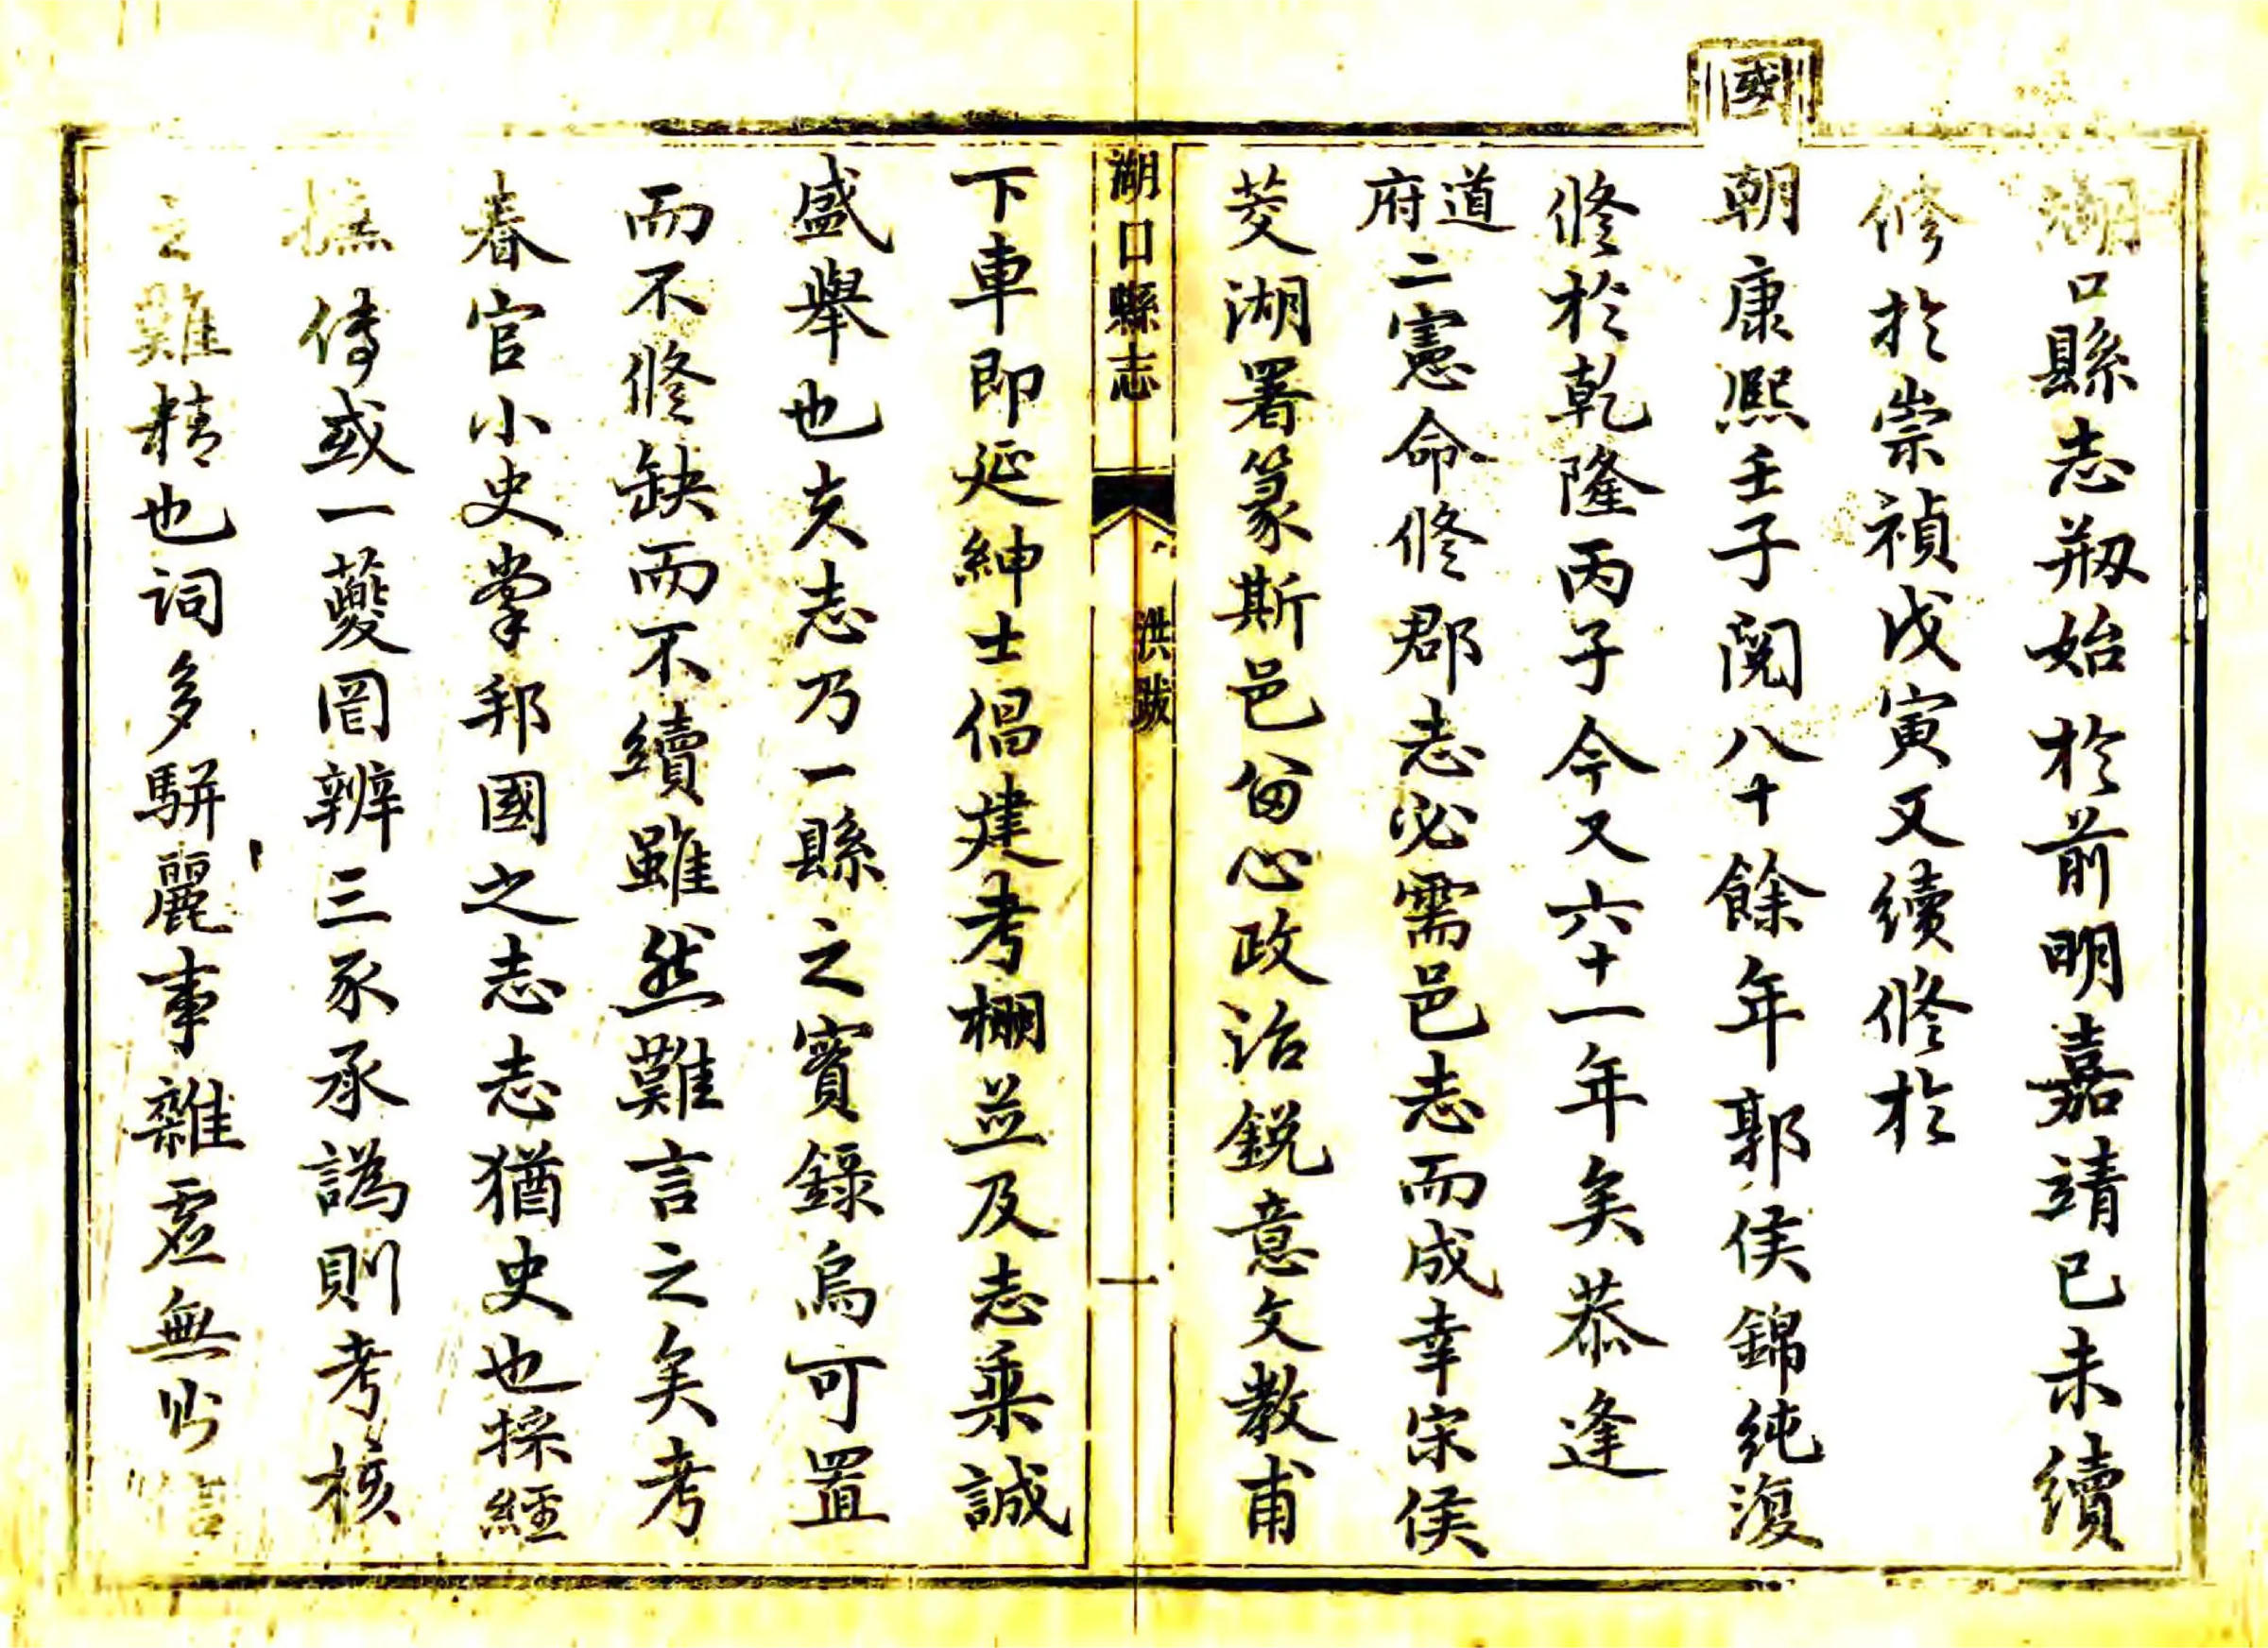 湖口縣志刱始於前明嘉靖已未續
修於崇禎戊寅又續修於
國
朝康熙壬子閱八十餘年郭侯錦純復
修於乾隆丙子今又六十一年矣恭逢
道府二憲命修郡志必需邑志而成幸宋侯
茭湖署篆斯邑畱心政治銳意文教甫
湖口縣志
洪跋
一
下車即延紳士倡建考棚並及志乘誠
盛舉也夫志乃一縣之實錄烏可置
而不修缺而不續雖然難言之矣考
春官小史掌邦國之志志猶史也採經
摭傳或一夔罔辨三豕承譌則考核
之難精也詞多駢麗事雜虛無